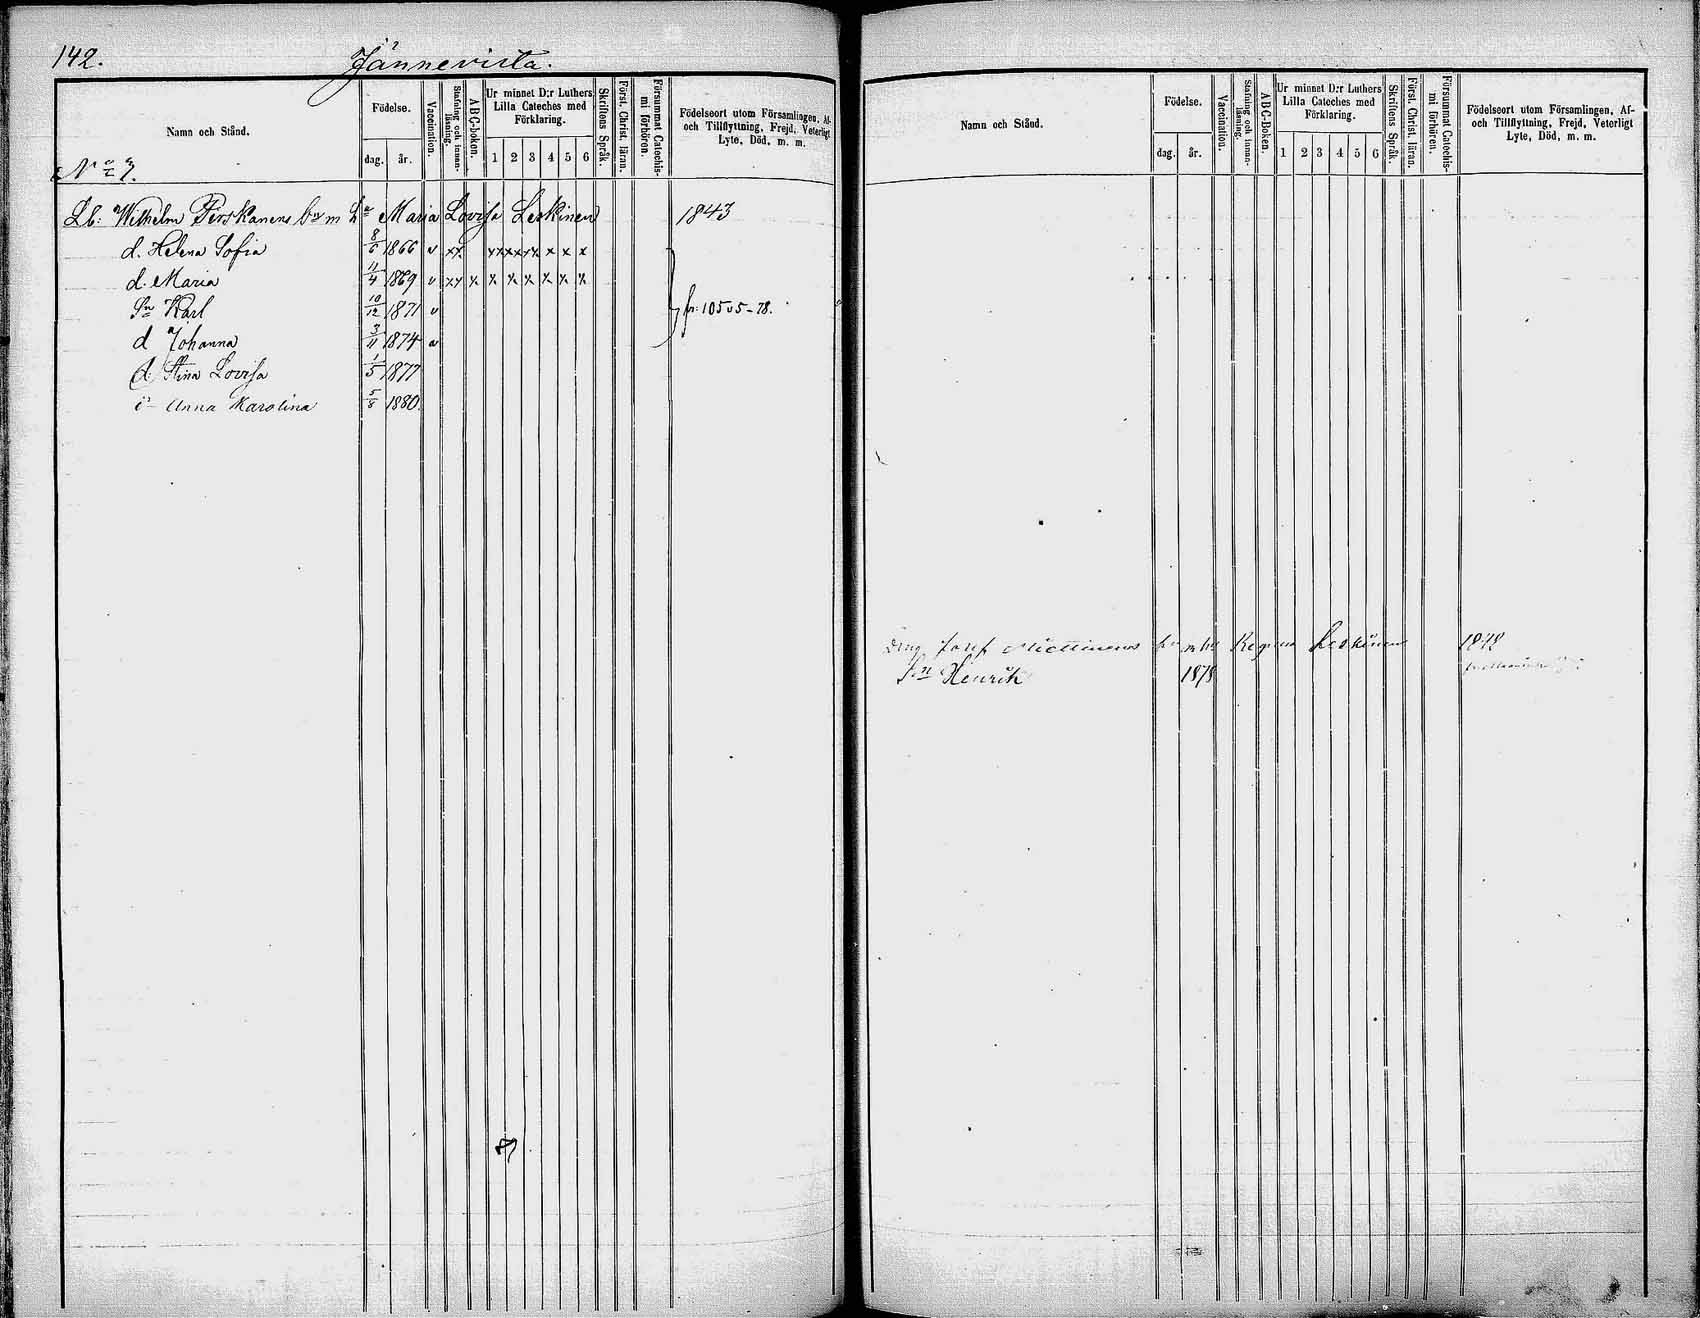 142. Jännevirta.
Namn och Stånd.
Födelse.
dag. år.
Vaccination.
Stafning och innan-läsning.
ABC-boken.
Ur minnet D:r Luthers Lilla Cateches med Förklaring.
1 2 3 4 5 6
Skriftens Språk.
Först. Christ. läran.
Försummat Catechis-mi förhören.
Födelseort utom Församlingen, Af-
och Tillflyttning, Frejd, Veterligt
Lyte, Död, m. m.
N:o 7.
Lb: Wilhelm Perskanens b:n m h:u Maria Lovisa Leskinen 1843
d. Helena Sofia 8/6 1866 v xx xxxxxx x x x
d. Maria 11/4 1869 v xx x x x x x x x
Sn Karl 10/12 1871 v fr: 105 v 5-78.
d Johanna 3/11 1874 v
d: Stina Lovisa 1/5 1877
Anna Karolina 5/8 1880.
Namn och Stånd.
Födelse.
dag. år.
Vaccination.
Stafning och innan-läsning.
ABC-Boken.
Ur minnet D:r Luthers Lilla Cateches med Förklaring.
1 2 3 4 5 6
Skriftens Språk.
Först. Christ. läran.
Försummat Catechis-mi förhören.
Födelseort utom Församlingen, Af-
och Tillflyttning, Frejd, Veterligt
Lyte, Död, m. m.
Drng Josef Miettinens Regina Leskinen
Sn Henrik 1878